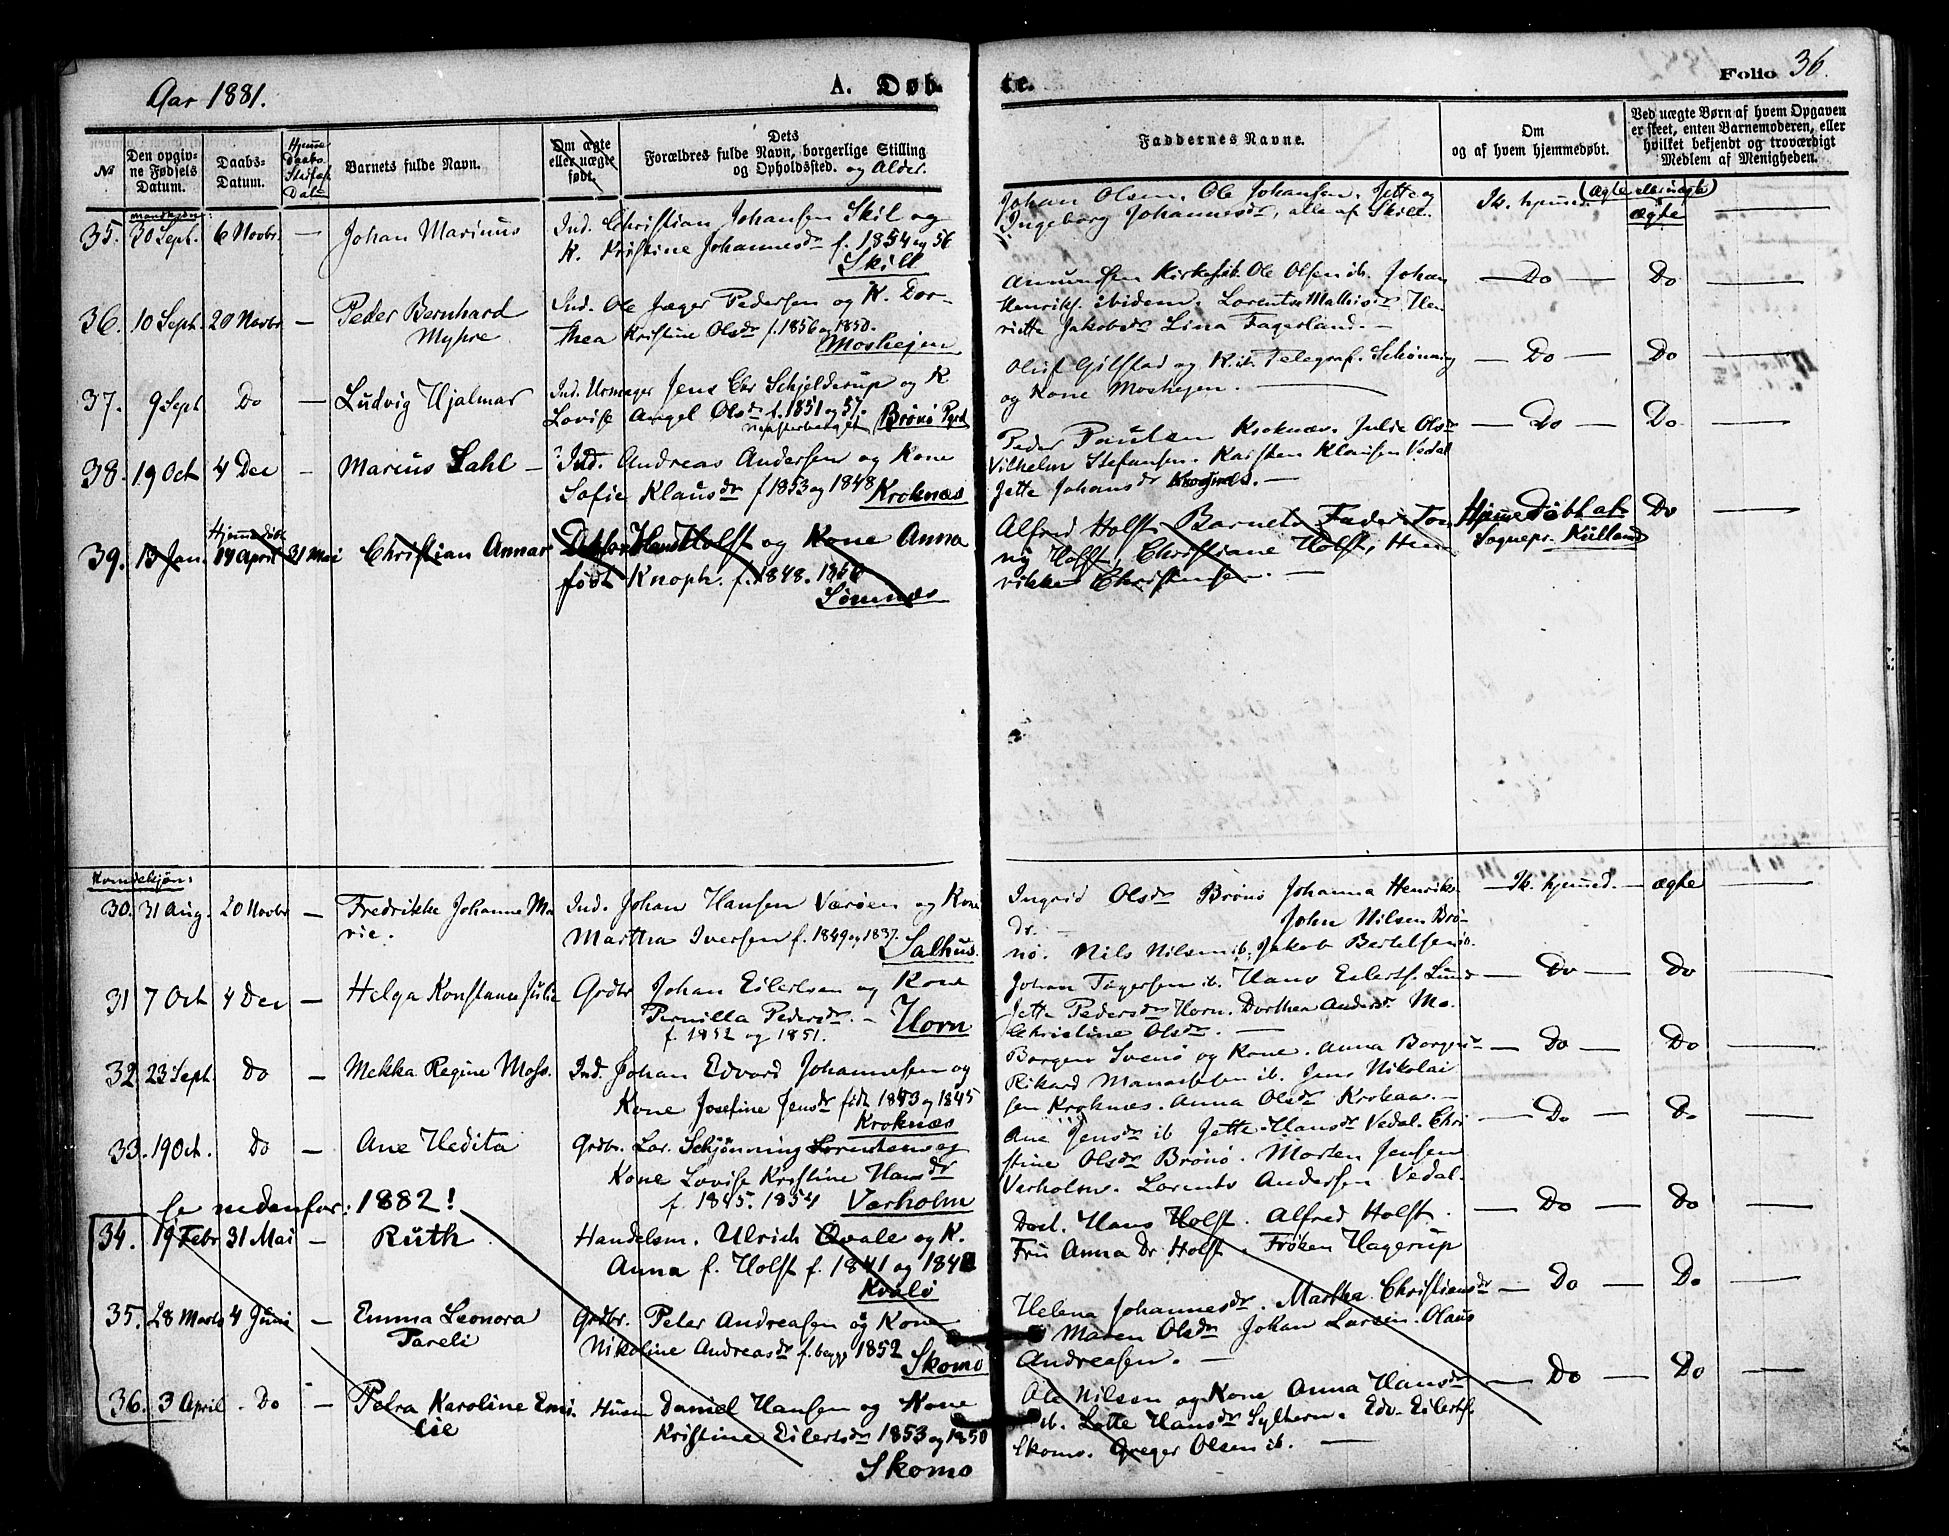 Aar 1881.
A. Døb-
te.
Folio 36.
№
Den opgiv-
ne Fødsels
Datum.
Daabs-
Datum.
Hjemme
Daabs
Stadfæst
Dat.
Barnets fulde Navn.
Om ægte
eller uægte
født.
Dets
Forældres fulde Navn, borgerlige Stilling
og Opholdssted. og Alder.
Faddernes Navne.
Om
og af hvem hjemmedøbt.
Ved uægte Børn af hvem Opgaven
er skeet, enten Barnemoderen, eller
hvilket bekjendt og troværdigt
Medlem af Menigheden.
(ægte eller uægte)
Mandkjøn:
35. 30 Sept. 6 Novbr. — Johan Marinus
Ind. Christian Johansen Skil og
K. Kristine Johannesdr f. 1854 og 56
Skill
Johan Olsen. Ole Johansen. Jette og
Ingeborg Johannesdr, alle af Skill.
Ik. hjemmed. ægte —
36. 10 Sept. 20 Novbr — Peder Bernhard
Myhre
Ind. Ole Jæger Pedersen og K. Dor-
thea Kristine Olsdr f. 1856 og 1850.
Moshejen
Amundsen Kirkes ib. Ole Olsen ib. Johan
Henriks. ibidem. Lorentse Mathisdr Hen
riette Jakobsdr Lina Fagerland. —
— Do — Do —
37. 9 Sept Do — Ludvig Hjalmar
Ind. Urmager Jens Chr Schjelderup og K
Lovise Angel Olsdr f. 1851 og 57. Brønø Pgrd
Oluf Gilstad og K. ib. Telegraf. Schønning
og Kone Moshejen. —
— Do — Do —
38. 19 Oct 4 Dec — Marius Dahl —
Ind. Andreas Andersen og Kone
Sofie Klausdr f 1853 og 1848 Kroknæs
Peder Paulsen Kroknæs. Julie Olsdr
Vilhelm Stefansen. Karsten Klausen Vedal
Jette Johansdr
— Do — Do —
Hjemmedøbt
39. 13 Jan. 14 April 31 Mai Christian Annar
Doktor Hans Holst og Kone Anna
født Knoph. f. 1848. 1850
Sømnæs
Alfred Holst Barnets Fader Ton
ny Holst, Christiane Holst, Hen
rikke Christensen. —
Hjemmedøbt af
Sognepr. Külland
Do —
Kvindekjøn:
30. 31 Aug. 20 Novbr — Fredrikke Johanne Ma
rie.
Ind. Johan Hansen Værøen og Kone
Martha Iversen f. 1849 og 1837. Salhus.
Ingrid Olsdr Brønø Johanna Henriks
dr. John Nilsen Brø-
nø. Nils Nilsen ib. Jakob Bertelsen ib.
— Ik. hjemmed. — ægte —
31 7 Oct 4 Dec — Helga Konstanse Julie
Grdbr Johan Eilertsen og Kone
Pernilla Pedersdr. — Horn
f 1852 og 1851.
Johan Tøgersen ib. Hans Eilerts. Lund
Jette Pedersdr Horn. Dorthea Andersdr Mo.
Christine Olsdr. —
— Do — Do —
32. 23 Sept. Do — Mekka Regine Moss.
Ind. Johan Edvard Johannessen og
Kone Josefine Jensdr født 1843 og 1845
Kroknæs
Borgen Svenø og Kone. Anna Borgersdr
Rikard Manassesen ib. Jens Nikolai
sen Kroknæs. Anna Olsdr Krokaa. —
— Do — Do —
33. 19 Oct. Do — Ane Hedita
Grdbr. Lar. Schjønning Lorentsen og
Kone Lovise Kristine Hansdr
f. 1845. 1854 Varholm
Ane Jensdr ib Jette Hansdr Vedal. Chri
stine Olsdr Brønø. Morten Jensen
Varholm. Lorents Andersen Vedal.
— Do — Do —
se nedenfor: 1882!
34. 19 Febr 31 Mai — Ruth
Handelsm. Ulrich Qvale og K.
Anna f. Holst f. 1841 og 184
Kvalø
Doct. Hans Holst. Alfred Holst.
Fru Anna Dr Holst. Frøken Hagerup
— Do — Do —
35. 28 Marts 4 Juni — Emma Leonora
Pareli
Grdbr. Peter Andreasen og Kone
Nikoline Andreasdr f. begge 1852 Skomo
Helena Johannesdr. Martha Christiansdr
Maren Olsdr Johan Larsen. Olaus
Andreasen. —
— Do — Do —
36. 3 April Do — Petra Karoline Emi-
lie
Husm Daniel Hansen og Kone
Kristine Eilertsdr 1853 og 1850
Skomo
Ole Nilsen og Kone Anna Hansdr
ib. Lotte Hansdr Sylthern. Edv. Eilerts.
Skomo. Greger Olsen ib. —
— Do — Do —